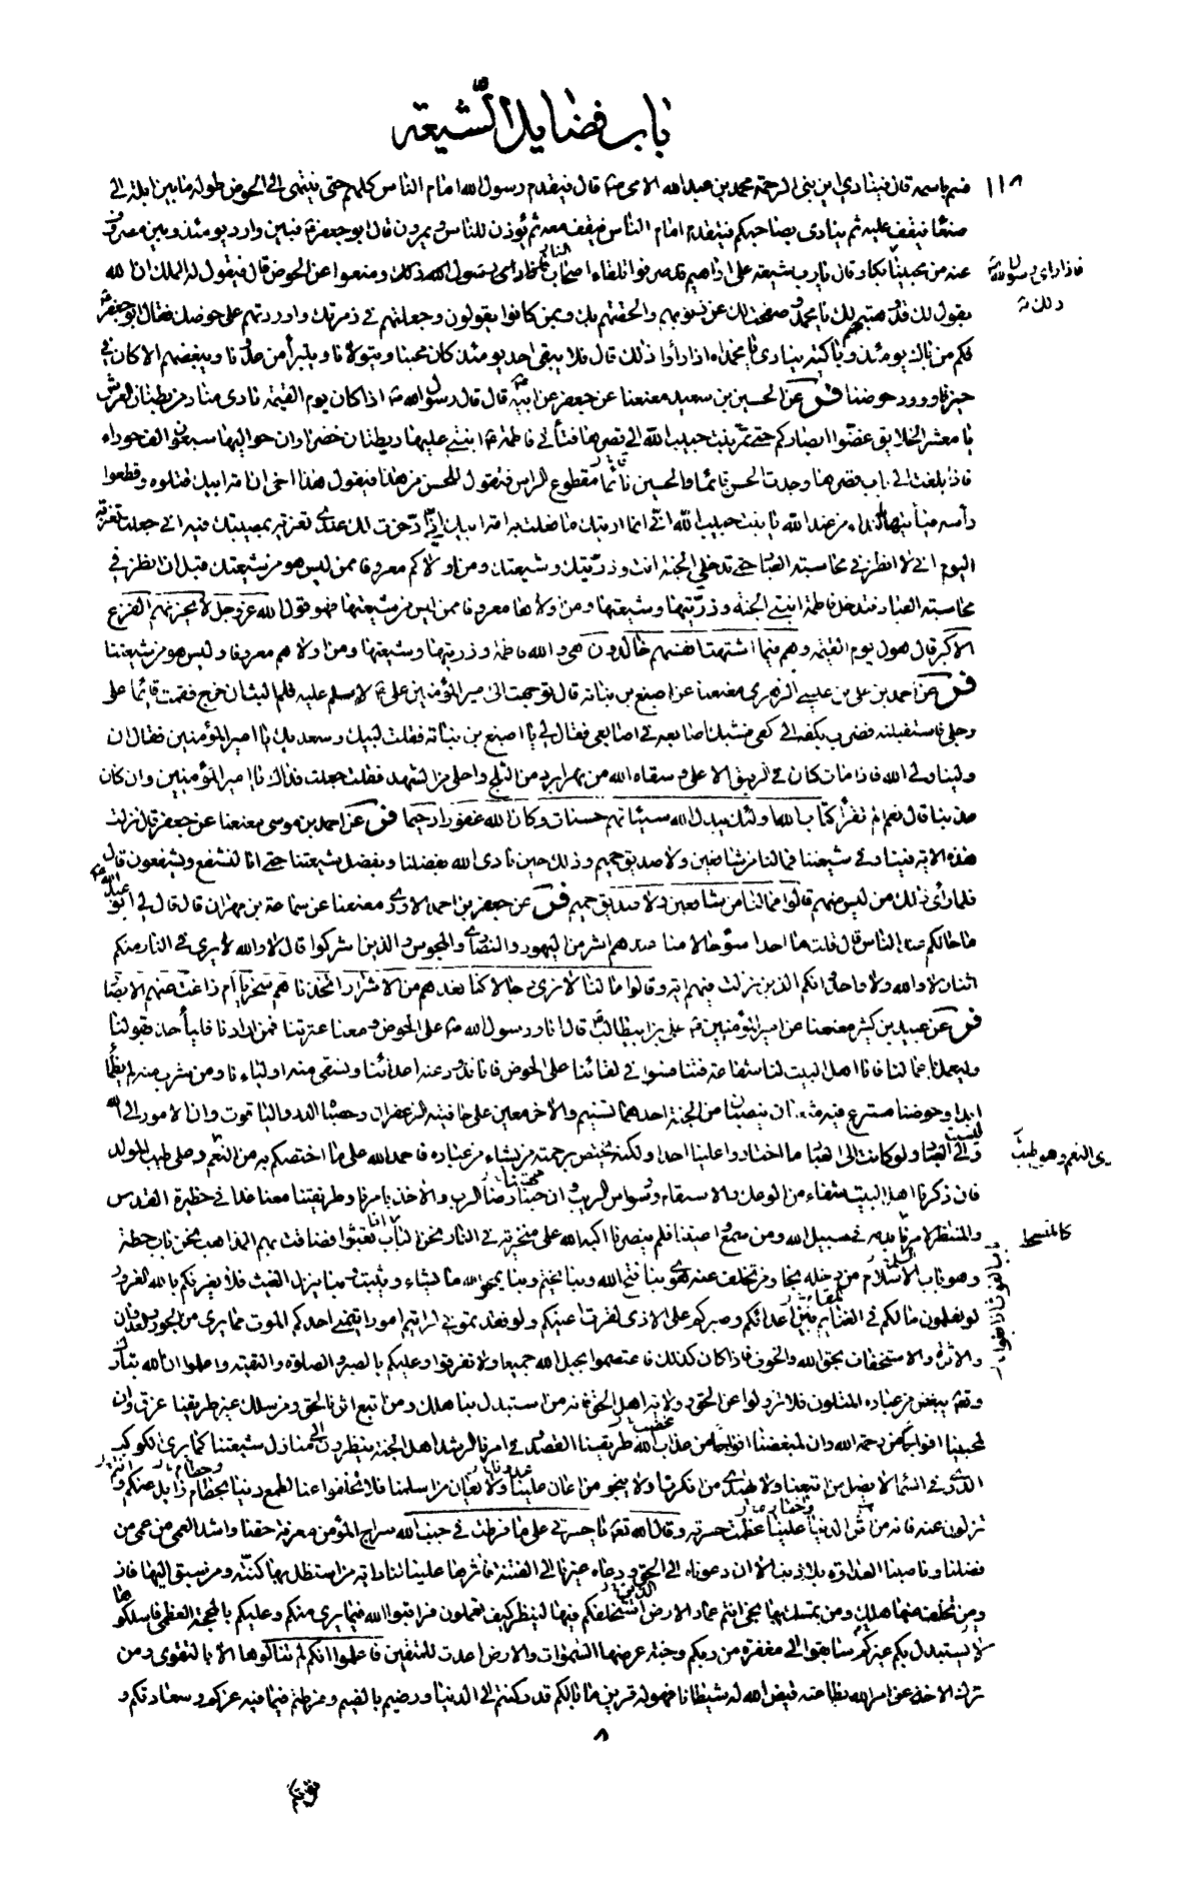 باب فضایل الشیعة
١١٨
فیسم باسمه قال فینادی این نبی الرحمة محمد بن عبد الله الامی ص قال فیتقدم رسول الله امام الناس کلهم حتی ینتهی الی الحوض طوله ما بین ابلة الی
صنعا فیقف علیه ثم ینادی بصاحبکم فیتقدم امام الناس فیقف معه ثم یؤذن للناس و یمرون قال ابو جعفر ع فبین وارد یومئذ و بین مصروف
عنه من محبینا بکا و قال یا رب شیعة علی اراهم قد صرفوا تلقاء اصحاب النار
فاذا رای رسول الله ص
ذلک
یقول لک قد وهبتهم لک یا محمد و صفحت لک عن ذنوبهم و الحقتهم بک و بمن کانوا یقولون و جعلتهم فی زمرتک و اوردتهم علی حوضک فقال ابو جعفر ع
فکم من باک یومئذ و باکیة ینادی یا محمداه اذا رأوا ذلک قال فلا یبقی احد یومئذ کان محبنا و یتولانا و یتبرأ من عدونا و یبغضهم الا کان فی
حیزنا و ورد حوضنا فر عن الحسین بن سعید معنعنا عن جعفر عن ابیه ع قال قال رسول الله ص اذا کان یوم القیمة نادی مناد من بطنان العرش
یا معشر الخلایق غضوا ابصارکم حتی تمر بنت حبیب الله الی قصرها فتأتی فاطمة ع ابنتی علیها ریطتان خضراوان حوالیها سبعون الف حوراء
فاذا بلغت الی باب قصرها وجدت الحسن قائما و الحسین نائما مقطوع الراس فتقول للحسن من هذا فیقول هذا اخی ان امة ابیک قتلوه و قطعوا
رأسه فیأتیها النداء من عند الله یا بنت حبیب الله انی انما اریتک ما فعلت به امة ابیک انی ادخرت لک عندی تعزیة بمصیبتک فیه انی جعلت تعزیتک
الیوم انی لا انظر فی محاسبة العباد حتی تدخلی الجنة انت و ذریتک و شیعتک و من اولاکم معروفا ممن لیس هو من شیعتک قبل ان انظر فی
محاسبة العباد فتدخل فاطمة ابنتی الجنة و ذریتها و شیعتها و من اولاها معروفا ممن لیس من شیعتها فهو قول الله عز و جل لا یحزنهم الفزع
الاکبر قال هول یوم القیمة و هم فیما اشتهت انفسهم خالدون هی و الله فاطمة و ذریتها و شیعتها و من اولاهم معروفا و لیس هو من شیعتنا
فر عن احمد بن علی بن عیسی الزهری معنعنا عن اصبغ بن نباته قال توجهت الی امیر المؤمنین علی ع لاسلم علیه فلم البث ان خرج فقمت قائما علی
رجلی فاستقبلته فضرب بکفه الی کفی فشبک اصابعه فی اصابعی فقال لی یا اصبغ بن نباته فقلت لبیک و سعدیک یا امیر المؤمنین فقال ان
ولینا ولی الله فاذا مات کان فی الرفیق الاعلی و سقاه الله من نهر ابرد من الثلج و احلی من الشهد فقلت جعلت فداک یا امیر المؤمنین و ان کان
مذنبا قال نعم الم تقرأ کتاب الله اولئک یبدل الله سیئاتهم حسنات و کان الله غفورا رحیما فر عن احمد بن موسی معنعنا عن جعفر قال نزلت
هذه الآیة فینا و فی شیعتنا فما لنا من شافعین و لا صدیق حمیم و ذلک حین نادی الله بفضلنا و بفضل شیعتنا حتی انا لنشفع و یشفعون قال
فلما رأی ذلک من لیس منهم قالوا فما لنا من شافعین و لا صدیق حمیم فر عن جعفر بن احمد الاودی معنعنا عن سماعة بن مهران قال قال لی ابو عبد الله ع
ما حالکم عند الناس قال قلت ما احد اسوء حالا منا عندهم اشر من الیهود و النصاری و المجوس و الذین اشرکوا قال لا و الله لا یری فی النار منکم
اثنان لا و الله و لا واحد انکم الذین نزلت فیهم الآیة و قالوا ما لنا لا نری رجالا کنا نعدهم من الاشرار اتخذناهم سخریا ام زاغت عنهم الابصار
فر عن عبید بن کثیر معنعنا عن امیر المؤمنین ع علی بن ابیطالب قال انا و رسول الله ص علی الحوض و معنا عترتنا فمن ارادنا فلیأخذ بقولنا
و لیعمل باعمالنا فانا اهل البیت لنا شفاعة فتنافسوا فی لقائنا علی الحوض فانا نذود عنه اعدائنا و نسقی منه اولیاءنا و من شرب منه لم یظمأ
ابدا و حوضنا مترع فیه مثعبان ینصبان من الجنة احدهما تسنیم و الآخر معین علی حافتیه الزعفران و حصباه الدر و الیاقوت و ان الامور الی الله
و لیست الی العباد و لو کانت الی العباد ما اختاروا علینا احدا و لکنه یختص برحمته من یشاء من عباده فاحمد الله علی ما اختصکم به من النعم و علی طیب المولد
فان ذکرنا اهل البیت شفاء من الوعک و الاسقام و وسواس الریب و ان حبنا رضا الرب و الآخذ بامرنا و طریقتنا معنا غدا فی حظیرة القدس
و المنتظر لامرنا کالمتشحط بدمه فی سبیل الله و من سمع واعیتنا فلم ینصرنا اکبه الله علی منخریه فی النار نحن الباب اذا بعثوا فضاقت بهم المذاهب نحن باب حطة
و هو باب الاسلام من دخله نجا و من تخلف عنه هوی بنا فتح الله و بنا یختم و بنا یمحو الله ما یشاء و یثبت و بنا ینزل الغیث فلا یغرنکم بالله الغرور
لو تعلمون ما لکم فی القیام بین اعدائکم و صبرکم علی الاذی لقرت اعینکم و لو فقدتمونی لرأیتم امورا یتمنی احدکم الموت مما یری من الجور و العدوان
و الاثرة و الاستخفاف بحق الله و الخوف فاذا کان کذلک فاعتصموا بحبل الله جمیعا و لا تفرقوا و علیکم بالصبر و الصلوة و التقیة و اعلموا ان الله تبارک
و تعالی یبغض من عباده المتلون فلا تزولوا عن الحق و ولایة اهل الحق فانه من استبدل بنا هلک و من اتبع اثرنا لحق و من سلک غیر طریقنا غرق و ان
لمحبینا افواجا من رحمة الله و ان لمبغضینا افواجا من عذاب الله طریقنا القصد و فی امرنا الرشد اهل الجنة ینظرون الی منازل شیعتنا کما یری الکوکب
الدری فی السماء لا یضل من اتبعنا و لا یهتدی من انکرنا و لا ینجو من اعان علینا و لا یعان من اسلمنا فلا تخلفوا عنا لطمع دنیا بحطام زایل عنکم و انتم
تزولون عنه فانه من آثر الدنیا علینا عظمت حسرته و قال الله تعالی یا حسرتی علی ما فرطت فی جنب الله سراج المؤمن معرفة حقنا و اشد العمی من عمی من
فضلنا و ناصبنا العداوة بلا ذنب الا ان دعوناه الی الحق و دعاه غیرنا الی الفتنة فآثرها علینا لنا رایة من استظل بها کنته و من سبق الیها فاز
و من تخلف عنها هلک و من تمسک بها نجی انتم عمار الارض الذین استخلفکم فیها لینظر کیف تعملون فراقبوا الله فیما یری منکم و علیکم بالمحجة العظمی فاسلکوها
لا یستبدل بکم غیرکم سابقوا الی مغفرة من ربکم و جنة عرضها السموات و الارض اعدت للمتقین فاعلموا انکم لم تنالوها الا بالتقوی و من
ترک الاخذ عن امر الله بطاعته قیض الله له شیطانا فهو له قرین ما بالکم قد رکنتم الی الدنیا و رضیتم بالضیم و فرطتم فیما فیه عزکم و سعادتکم و
٨